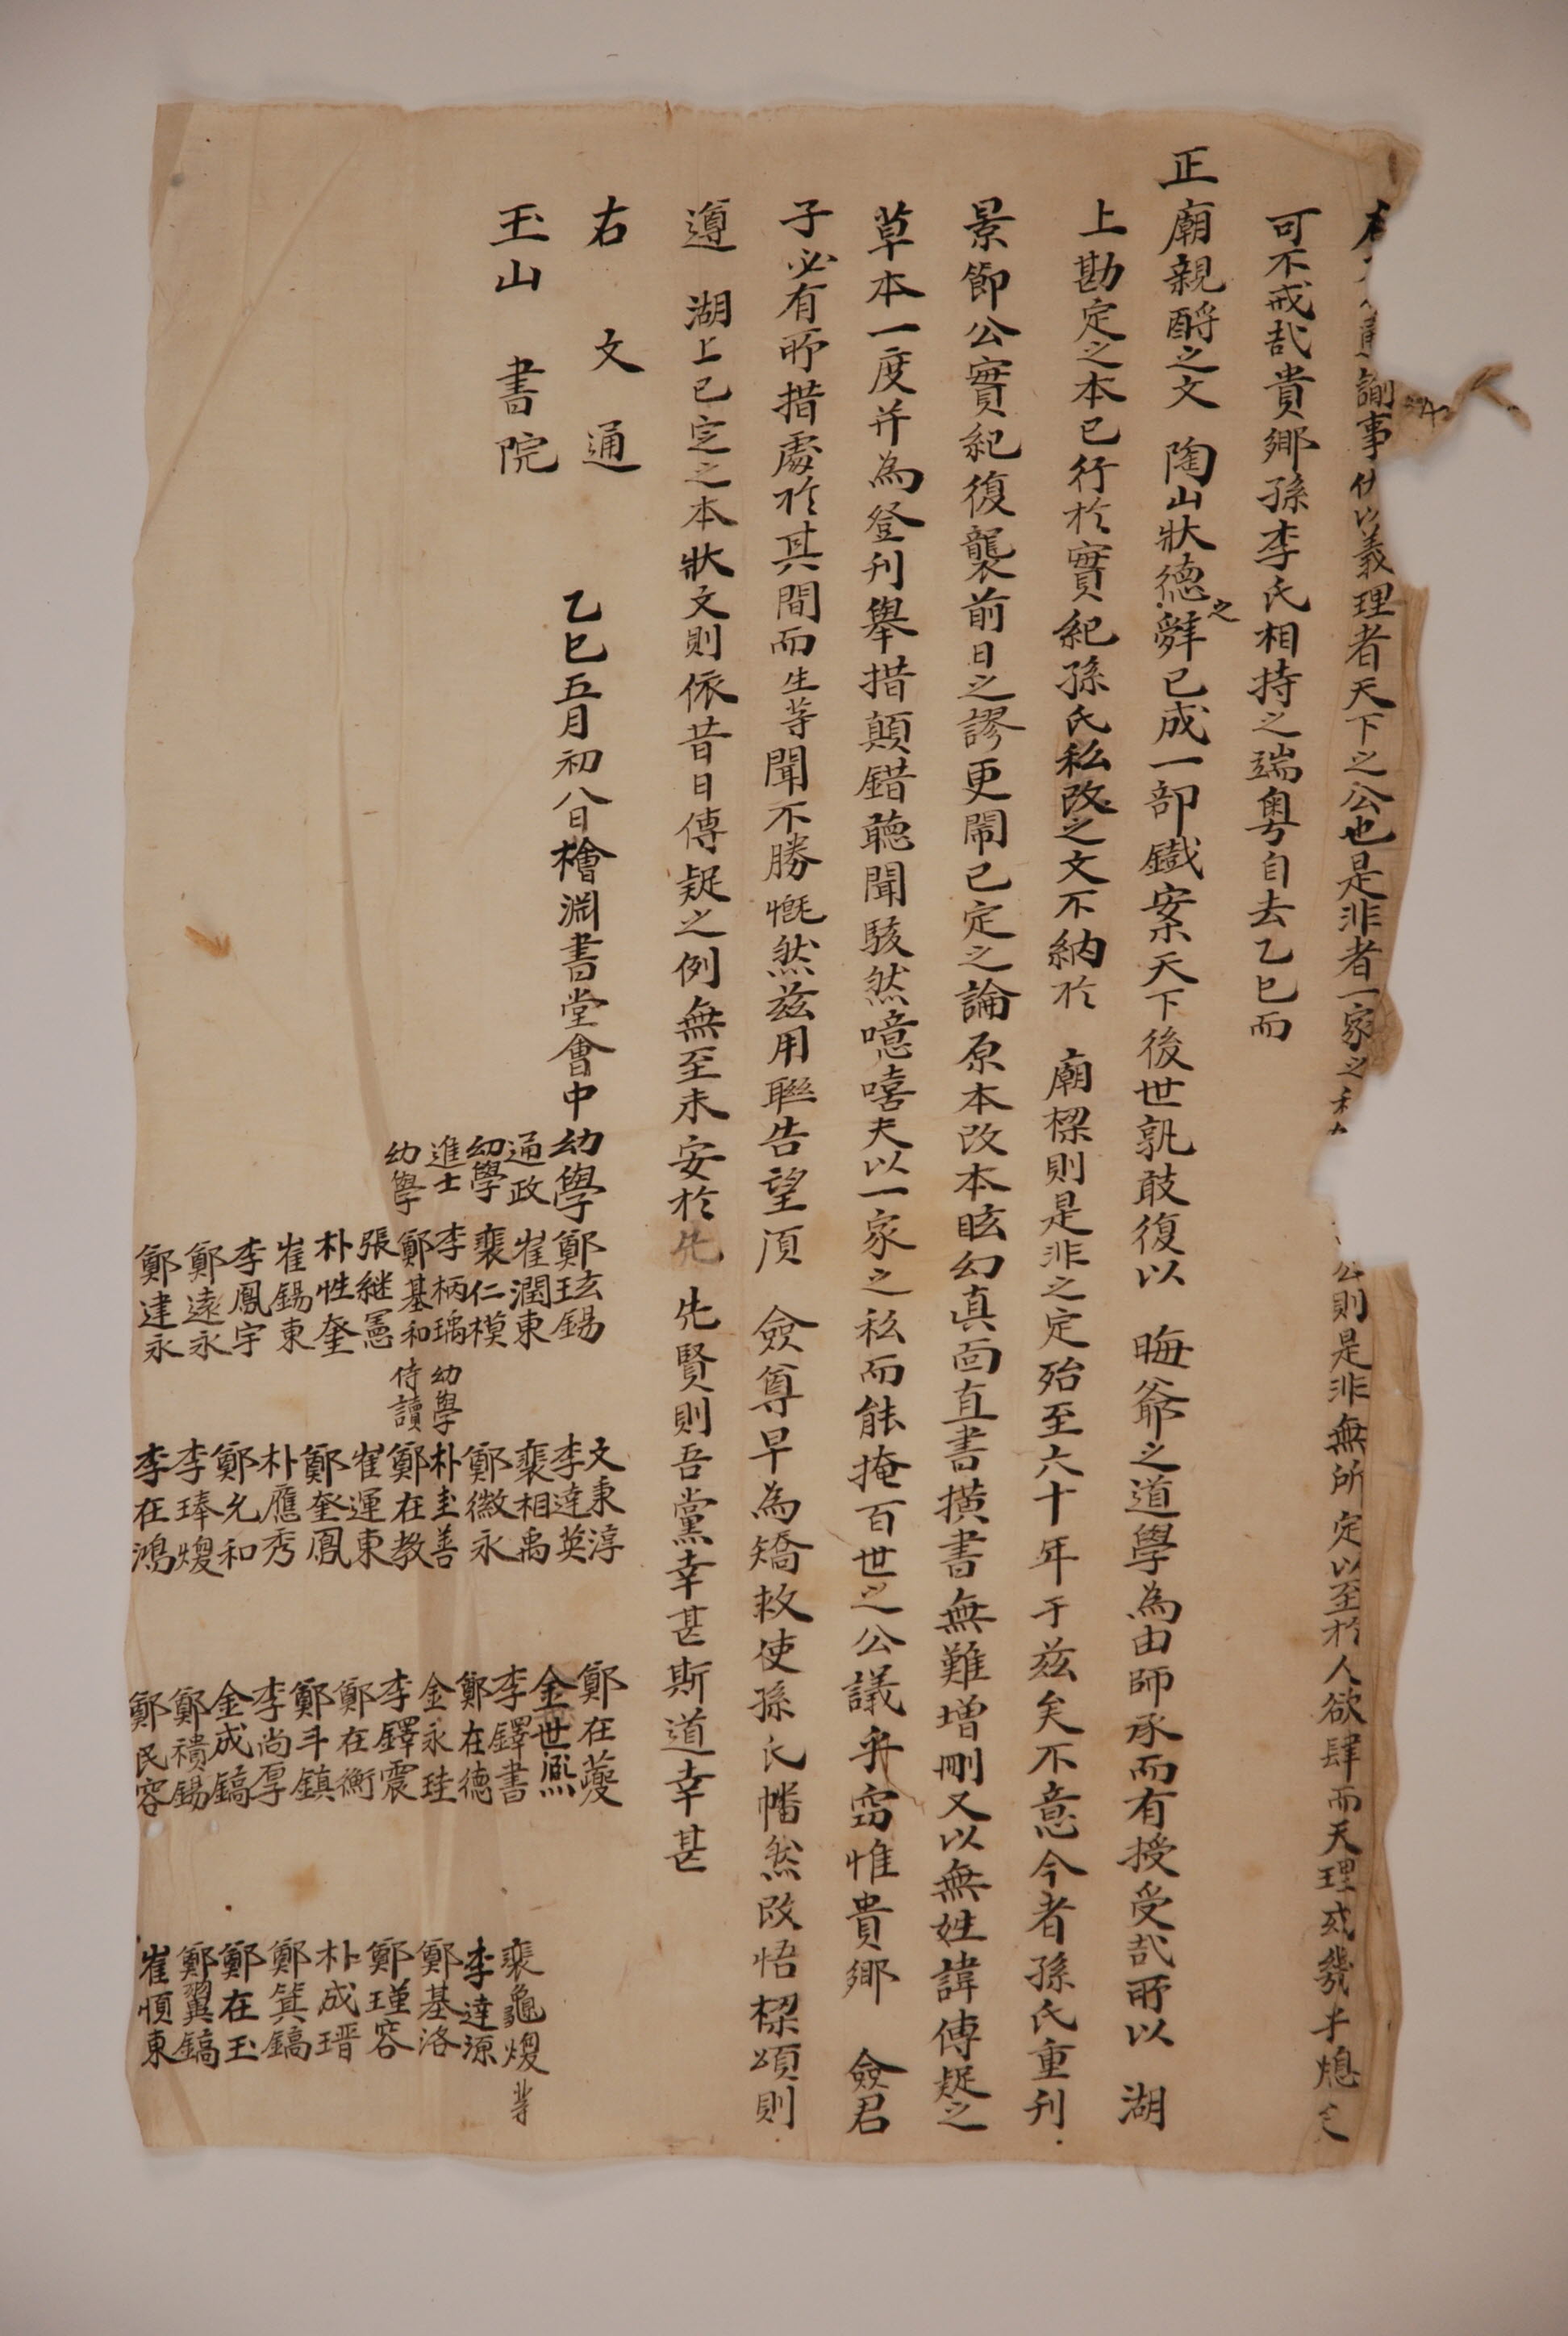 諭事伏以義理者天下之公也是非者一家之 公則是非無所定以至於人欲肆而天理或幾乎熄
可不戒哉貴鄉孫李氏相持之端粤自去乙巳而
正廟親酹之文 陶山狀德之辭已成一部鐵案天下後世孰敢復以 晦爺之道學為由師承而有授受哉所以 湖
上勘定之本已行於實紀孫氏私改之文不納於 廟樑則是非之定殆至六十年于玆矣不意今者孫氏重刊
景節公實紀復襲前日之謬更鬧已定之論原本改本眩幻真面直書橫書無難增刪又以無姓諱傳疑之
草本一度并為登刊舉措顛錯聽聞駭然噫嘻夫以一家之私而能掩百世之公議乎窃惟貴鄉 僉君
子必有所措處於其間而生等聞不勝慨然玆用聯告望須 僉尊早為矯救使孫氏幡然改悟樑頌則
遵 湖上已定之本狀文則依昔日傳疑之例無至未安於先 先賢則吾黨幸甚斯道幸甚
右文通
玉山書院
乙巳五月初八日檜淵書堂會中
幼學 鄭玹錫
通政 崔潤東
幼學 裴仁模
進士 李柄瑀
幼學 鄭基和
張継憲
朴性奎
崔錫東
李鳳宇
鄭遠永
鄭建永
文秉淳
李達英
裴相禹
鄭徽永
幼學 朴圭善
侍讀 鄭在教
崔運東
鄭奎鳳
朴應秀
鄭允和
李琫煥
李在鴻
鄭在夔
金世凞
李鐸書
鄭在德
金永珪
李鐸震
鄭在衡
鄭斗鎮
李尚厚
金成鎬
鄭禶錫
鄭民容
裴龜煥等
李達源
鄭基洛
鄭瑾容
朴成瑨
鄭箕鎬
鄭在玉
鄭翼鎬
崔順東